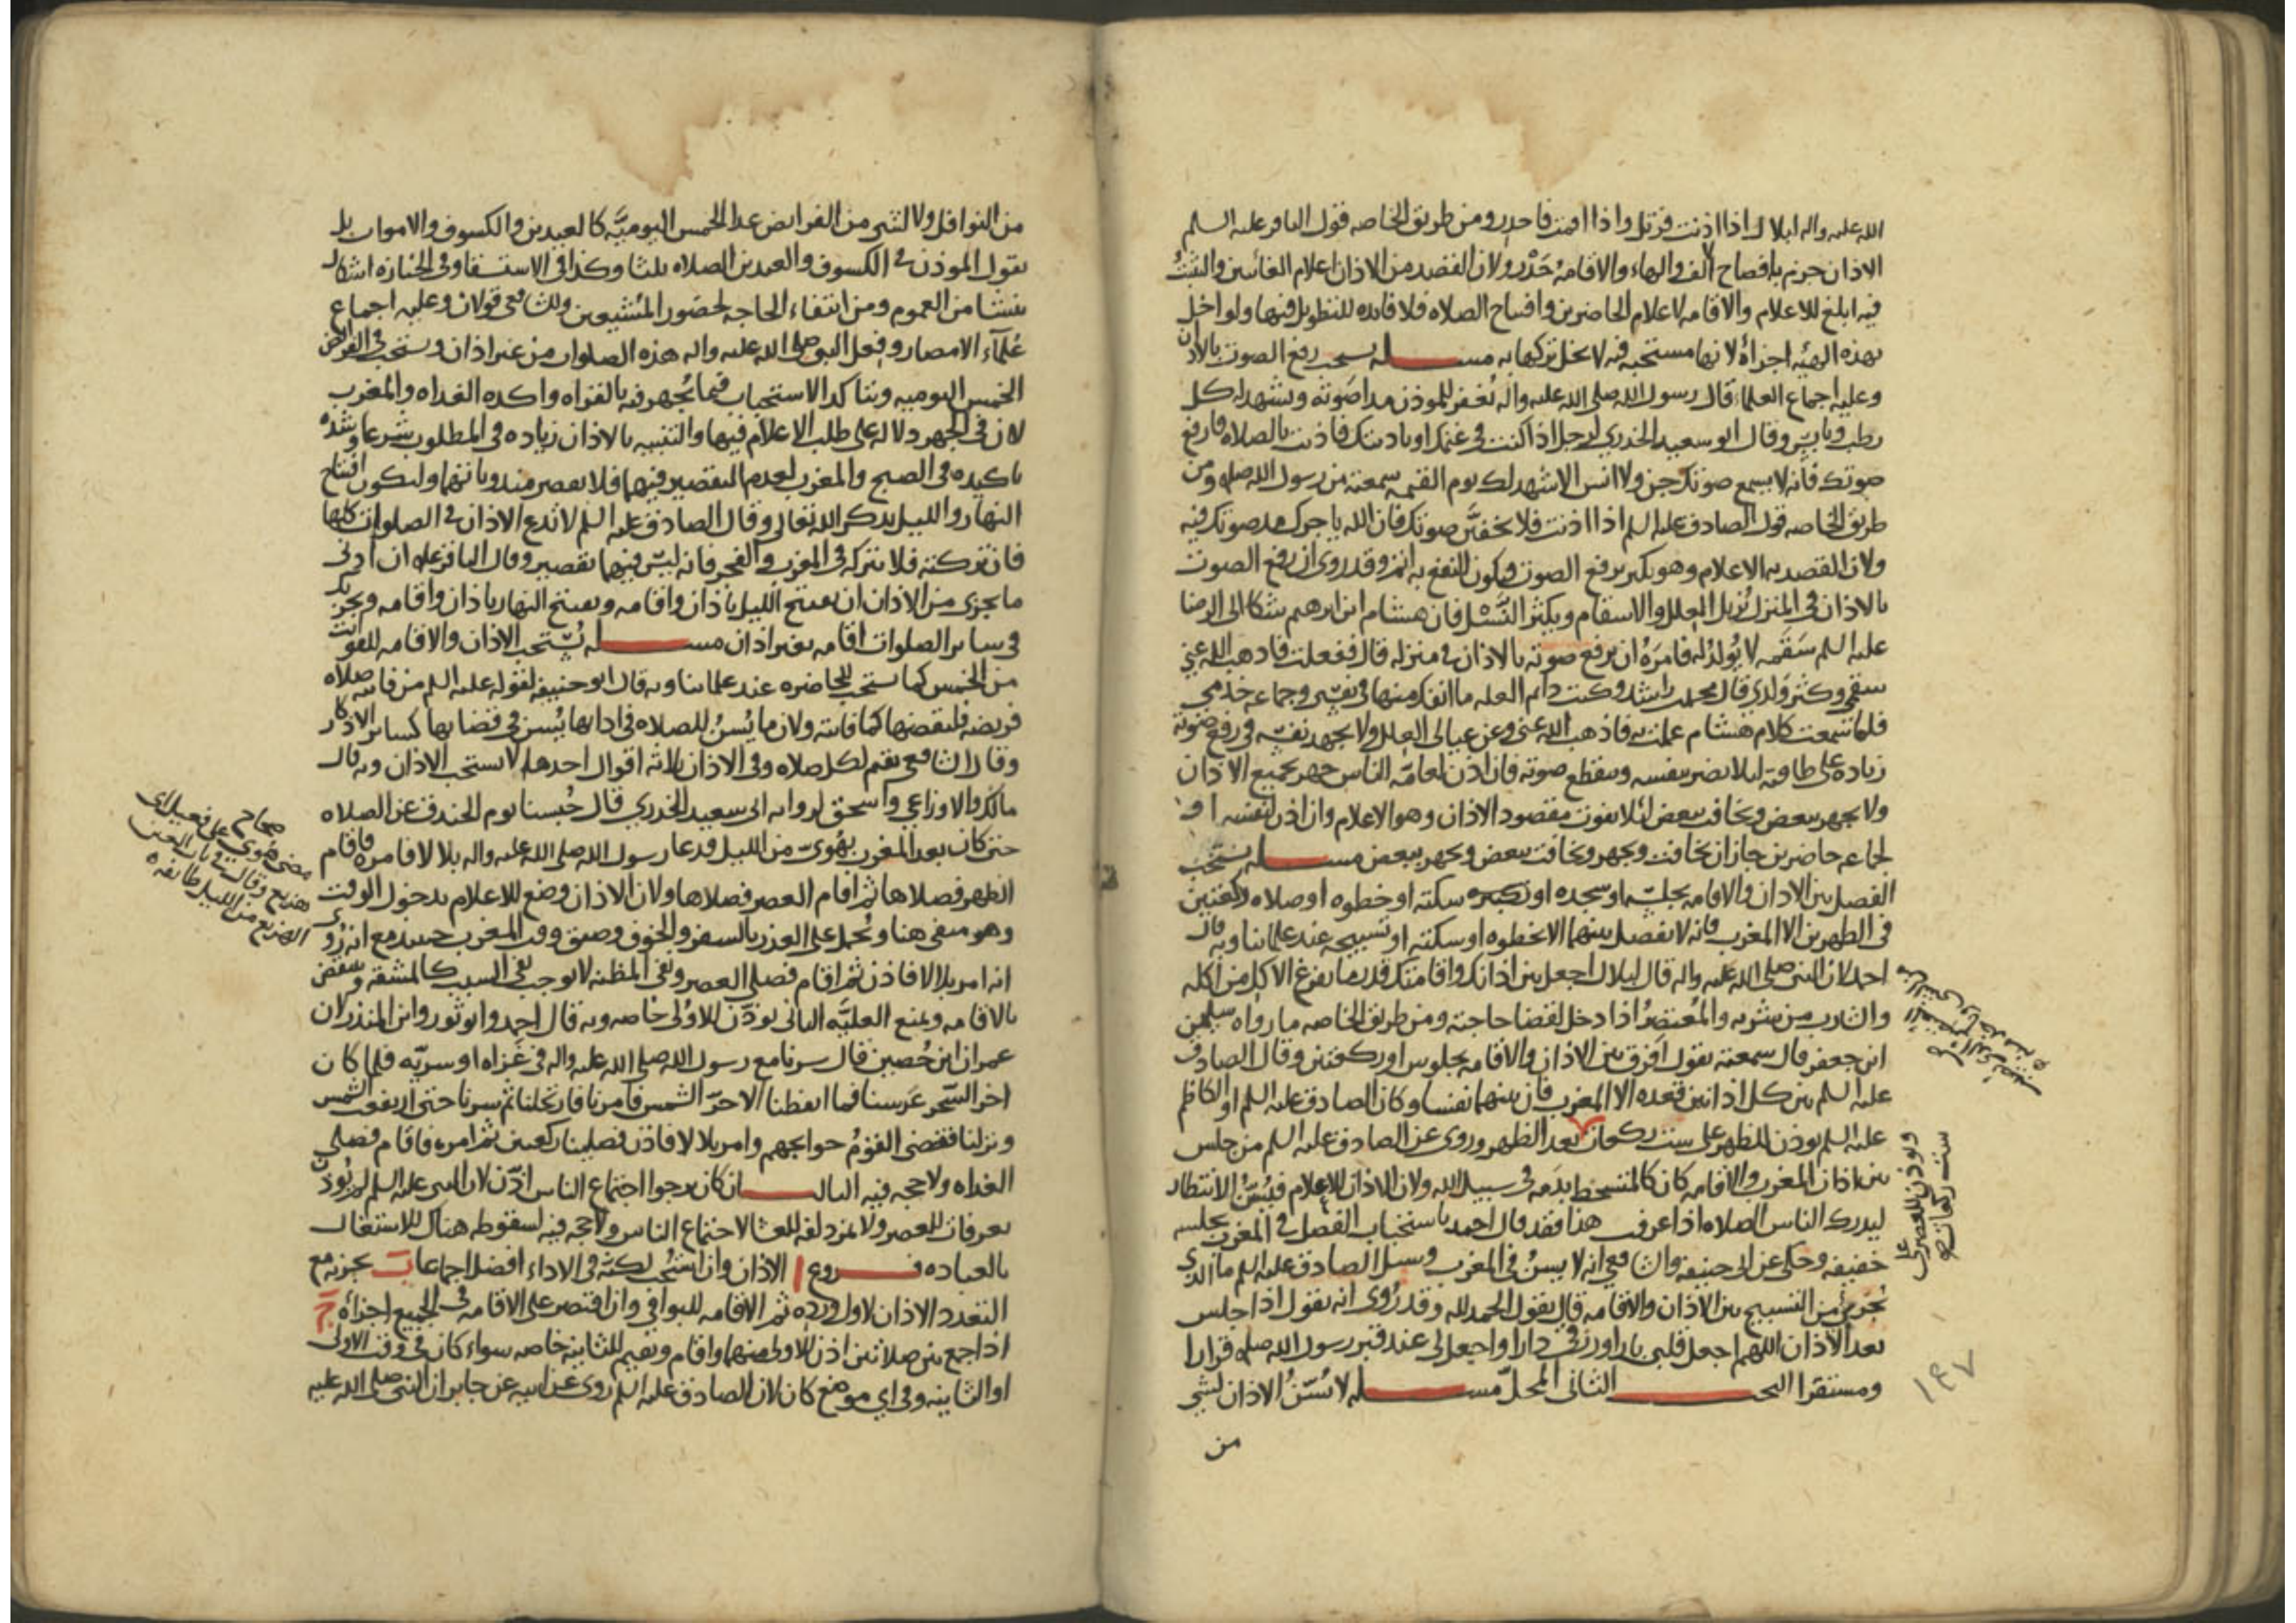 الله عليه واله لبلال اذا اذنت فترتل واذا اقمت فاحدر ومن طريق الخاصه قول الباقر عليه السلم
الاذان جزم بافصاح الالف والهاء والاقامه حَدْر ولان القصد من الاذان اعلام الغائبين والتثبّتُ
فيه ابلغ للاعلام والاقامه لاعلام الحاضرين وافتتاح الصلاه فلا فايده للتطويل فيها ولو اخل
بهذه الهيئه اجزأه لانها مستحبه فيه لا يخل تركها به مسـله يستحب رفع الصوت بالاذان
وعليه اجماع العلماء قال رسول الله صلى الله عليه واله يُغفر للموذن مدا صَوته ويشهد له كل
رطب ويابس وقال ابو سعيد الخدري لرجل اذا كنت في غنمك او باديتك فاذنت بالصلاه فارفع
صوتك فانه لا يسمع صوتك جن ولا انس الا شهد لك يوم القيمه سمعته من رسول الله صله ومن
طريق الخاصه قول الصادق عليه السلم اذا اذنت فلا تخفيَنّ صوتك فان الله ياجرك مد صوتك فيه
ولان القصد به الاعلام وهو يكبر برفع الصوت فيكون النفع به اتم وقد روى ان رفع الصوت
بالاذان في المنزل يُزيل العلل والاسقام ويكثر النَّسْل فان هشام ابن ابرهيم شكا الى الرضا
عليه السلم سَقَمه لا يُولدُ له فامَرَهُ ان يرفع صوته بالاذان في منزله قال ففعلت فاذهب الله عني
سقمي وكثر وَلدي قال محمد بن راشد وكنت دايم العله ما انفك منها في نفسي وجماعه خدمي
فلما سمعت كلام هشام عملت به فاذهب الله عني وعن عيالي العلل ولا يجهد نفسه في رفع صوته
زياده على طاقته ليلا يضر بنفسه وينقطع صوته فان اذن لعامّه الناس جهر بجميع الاذان
ولا يجهر ببعض ويخافت ببعض لئلا يفوت مقصود الاذان وهو الاعلام وان اذن لنفسه او
لجماعه حاضرين جاز ان يخافت ويجهر ويخافت ببعض ويجهر ببعض مسـله يستحب
الفصل بين الاذان والاقامه بجلسه او سجده او سكته او خطوه او صلاه ركعتين
في الظهرين الا المغرب فانه لا يفصل بينهما الا بخطوه او سكته او تسبيحه عند علمائنا وبه قال
احمد لان النبي صلى الله عليه واله قال لبلال اجعل بين اذانك واقامتك قدر ما يفرغ الاكل من اكله
والشارب من شربه والمُعتصِرُ اذا دخل لقضا حاجته ومن طريق الخاصه ما رواه سليمن
ابن جعفر قال سمعته يقول افرق بين الاذان والاقامه بجلوس او ركعتين وقال الصادق
عليه السلم بين كل اذانين قعده الا المغرب فان بينهما نفسا وكان الصادق عليه السلم او الكاظم
عليه السلم يوذن للظهر على ست ركعات بعد الظهر وروى عن الصادق عليه السلم من جلس
بين اذان المغرب والاقامه كان كالمتشحط بدَمه في سبيل الله ولان الاذان للاعلام فيُسَنُّ الانتظار
ليدرك الناس الصلاه اذا عرفت هذا فقد قال احمد باستحباب الفصل في المغرب بجلسه
خفيفه وحكى عن ابي حنيفه والشافعي انه لا يسنُ في المغرب وسئل الصادق عليه السلم ما الذي
يُجزئ من التسبيح بين الاذان والاقامه قال يقول الحمد لله وقد رُوى انه يقول اذا جلس
بعد الاذان اللهم اجعل قلبي بارا ورزقي دارا واجعل لي عند قبر رسول الله صله قرارا
ومستقرا البحـث الثاني المحلّ مسـله لا يُسَنُّ الاذان لشي
من
ويوذن للعصر على
ست ركعات صح
١٣٧
من النوافل ولا لشي من الفرايض عدا الخمس اليوميَّه كالعيدين والكسوف والاموات بل
يقول الموذن في الكسوف والعيدين الصلاه ثلثا وكذا في الاستسقا وفي الجنازه اشكال
ينشا من العموم ومن انتفاء الحاجه لحضور المُشيعين وللشافعي قولان وعليه اجماع
عُلمَآء الامصار وفعل النبي صلى الله عليه واله هذه الصلوات من غير اذان ويستحب في الفرائض
الخمس اليوميه ويتاكد الاستحباب فيما يُجهر فيه بالقراه واكده الغداه والمغرب
لان في الجهر دلاله على طلب الاعلام فيها والتنبيه بالاذان زياده في المطلوب شرعا وشده
تاكيده في الصبح والمغرب لعدم التقصير فيهما فلا يقصر مندوباتهما وليكون افتتاح
النهار والليل بذكر الله تعالى وقال الصادق عليه السلم لا تدع الاذان في الصلوات كلها
فان تركته فلا تتركه في المغرب والفجر فانه ليس فيهما تقصير وقال الباقر عله ان ادنى
ما يجزى من الاذان ان يفتتح الليل باذان واقامه ويفتتح النهار باذان واقامه ويجزيك
في ساير الصلوات اقامه بغير اذان مسـله يُستحب الاذان والاقامه للفوايت
من الخمس كما يستحب للحاضره عند علمائنا وبه قال ابو حنيفه لقوله عليه السلم من فاتته صلاه
فريضه فليقضها كما فاتته ولان ما يُسنُ للصلاه في ادائها يُسن في قضائها كساير الاذكار
وقال الشافعي يقيم لكل صلاه وفي الاذان ثلاثه اقوال احدها لا يستحب الاذان وبه قال
مالك والاوزاعي واسحق لروايه ابي سعيد الخدري قال حُبسنا يوم الخندق عن الصلاه
حتى كان بعد المغرب بهُويّ من الليل فدعا رسول الله صلى الله عليه واله بلالا فامره فاقام
الظهر فصلاها ثم اقام العصر فصلاها ولان الاذان وضع للاعلام بدخول الوقت
وهو منفى هنا ويُحمل على العذر بالسفر والخوف وضيق وقت المغرب حينئذ مع انه رُوى
انه امر بلالا فاذن ثم اقام فصلى العصر ونفى المظنه لا يوجب نفى السبب كالمشقه وينتقض
بالاقامه ويمنع العليَّه الثاني يوذّن للاولى خاصه وبه قال احمد وابو ثور وابن المنذر لان
عمران ابن حُصين قال سرنا مع رسول الله صلى الله عليه واله في غَزاه او سريّه فلما كان
اخر السَّحر عَرسنا فما ايقظنا الا حرّ الشمس فامرنا فارتحلنا ثم سرنا حتى ارتفعت الشمس
ونزلنا فقضى القَومُ حوايجهم وامر بلالا فاذن فصلينا ركعتين ثم امره فاقام فصلى
الغداه ولا حجه فيه الثالـث ان كان يرجوا اجتماع الناس اذّن لان النبي عليه السلم لم يُوذن
بعرفات للعصر ولا بمزدلفه للعشا لاجتماع الناس ولا حجه فيه لسقوطه هناك للاشتغال
بالعباده فـروع ا الاذان وان استُحب لكنّه في الاداء افضل اجماعا ب يجزيه مع
التعدد الاذان لاول ورده ثم الاقامه للبواقي وان اقتصر على الاقامه في الجميع اجزأه ج
اذا جمع بين صلاتين اذن للاولى منهما واقام ويقيم للثانيه خاصه سواء كان في وقت الاولى
او الثانيه وفي اي موضع كان لان الصادق عليه السلم روى عن ابيه عن جابر ان النبي صلى الله عليه
صحاح
مضى هوى على فعيل اى
هزيع وقال في باب العين
الهزيع من الليل طائفه